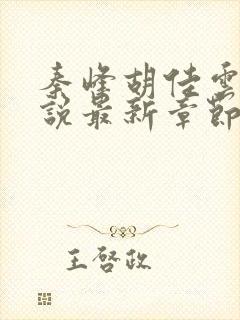 秦峰胡佳雲
說最新章節
王啓政